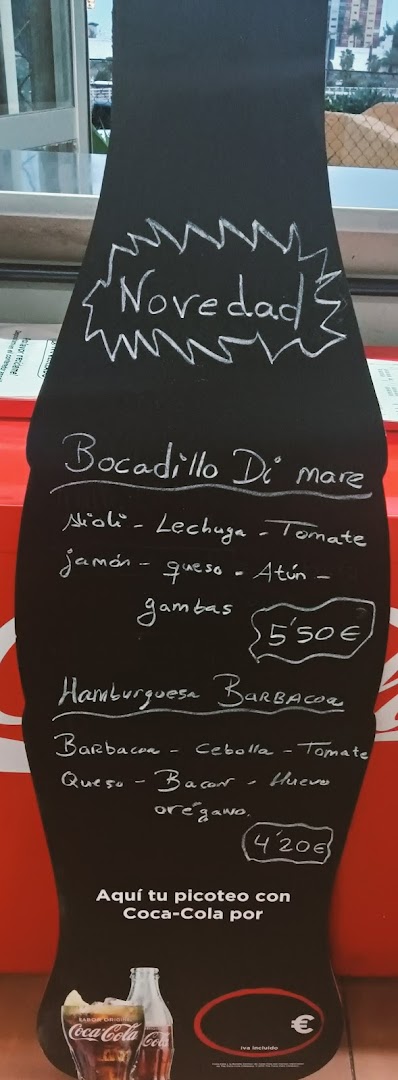 Novedad
Bocadillo Di mare
Alioli - Lechuga - Tomate
jamón - queso - Atún -
gambas
5'50€
Hamburguesa BARBACOA
Barbacoa - Cebolla - Tomate
Queso - Bacon - Huevo
orégano.
4'20€
Aquí tu picoteo con
Coca-Cola por
SABOR ORIGINAL
Coca-Cola
Coca
€
iva incluido